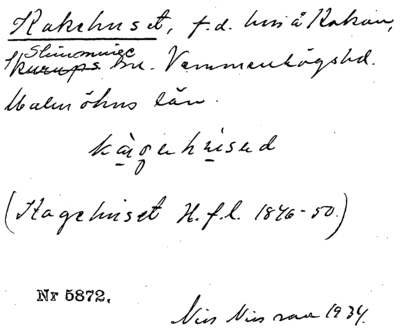 Kakehuset, f.d. hus å Kakan,
Slimminge
Skurups sn. Vemmenhögs hd.
Malmöhus län.
kågehused
(Kagehuset H.f.l. 1846-50.)
Nr 5872.
Nils Nilsson 1934.